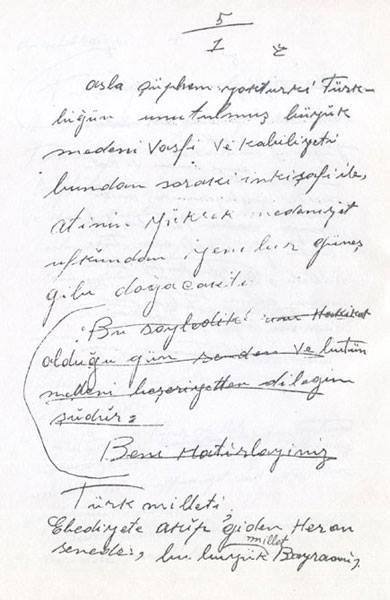 5
1
asla şüphem yokturki Türk-
lüğün unutulmuş büyük
medeni vasfi ve kabiliyeti
bundan sonraki inkişafi ile,
atinin yüksek medeniyet
ufkundan yeni bir güneş
gibi doğacaktı.
Bu söylediklerim Hakikat
olduğu gün senden ve bütün
medeni beşeriyetten dileğim
şudur:
Beni Hatırlayiniz
Türk milleti
Ebediyete akıp giden Her on
senede, bu büyük millet Bayramını,